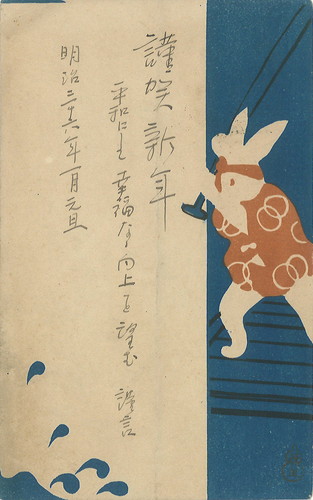 謹賀新年
平和にも幸福な向上を望む 謹言
明治三十六年一月元旦